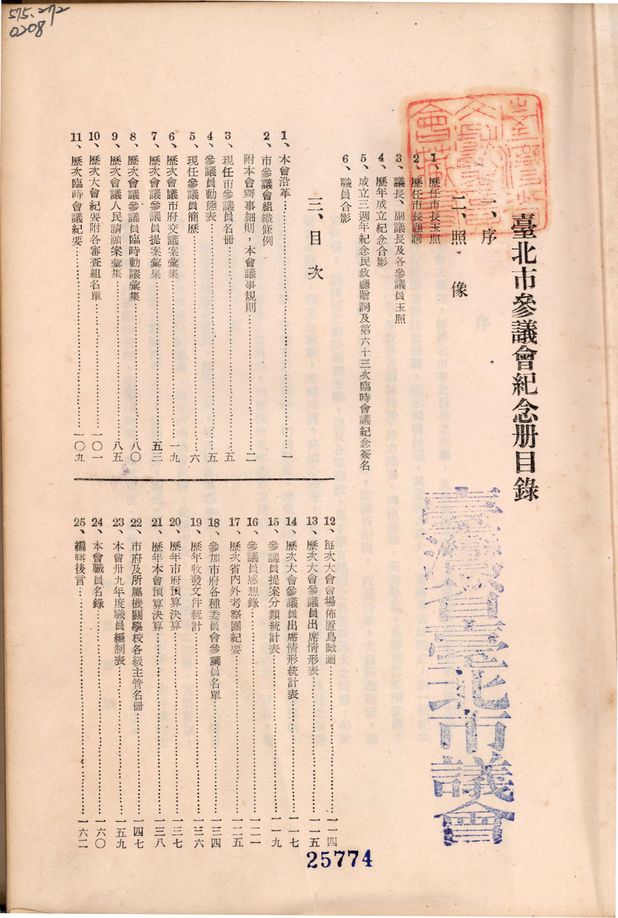 575.272
0208
臺北市參議會紀念册目錄
一、序
二、照像
1、歷任市長玉照
2、歷任市長題詞
3、議長、副議長及各參議員玉照
4、歷年成立紀念合影
5、成立三週年紀念民政廳贈詞及第六十三次臨時會議紀念簽名
6、職員合影
三、目次
1、本會沿革……一
2、市參議會組織條例
附本會辦事細則，本會議事規則……二
3、現任市參議員名冊……五
4、參議員動態表……五
5、現任參議員簡歷……六
6、歷次會議市府交議案彙集……一九
7、歷次會議參議員提案彙集……五三
8、歷次會議參議員臨時動議彙集……八〇
9、歷次會議人民請願案彙集……八五
10、歷次大會紀要附各審查組名單……一〇一
11、歷次臨時會議紀要……一〇九
12、每次大會會場佈置鳥瞰圖……一一四
13、歷次大會參議員出席情形表……一一五
14、歷次大會參議員出席情形統計表……一一七
15、參議員提案分類統計表……一一九
16、參議員感想錄……一二一
17、歷次省內外考察團紀要……一二五
18、參加市府各種委員會參議員名單……一三四
19、歷年收發文件統計……一三六
20、歷年市府預算決算……一三七
21、歷年本會預算決算……一三八
22、市府及所屬機關學校各級主管名冊……一四七
23、本會卅九年度職員編制表……一五九
24、本會職員名錄……一六〇
25、編輯後言……一六二
臺灣省臺北市議會
25774